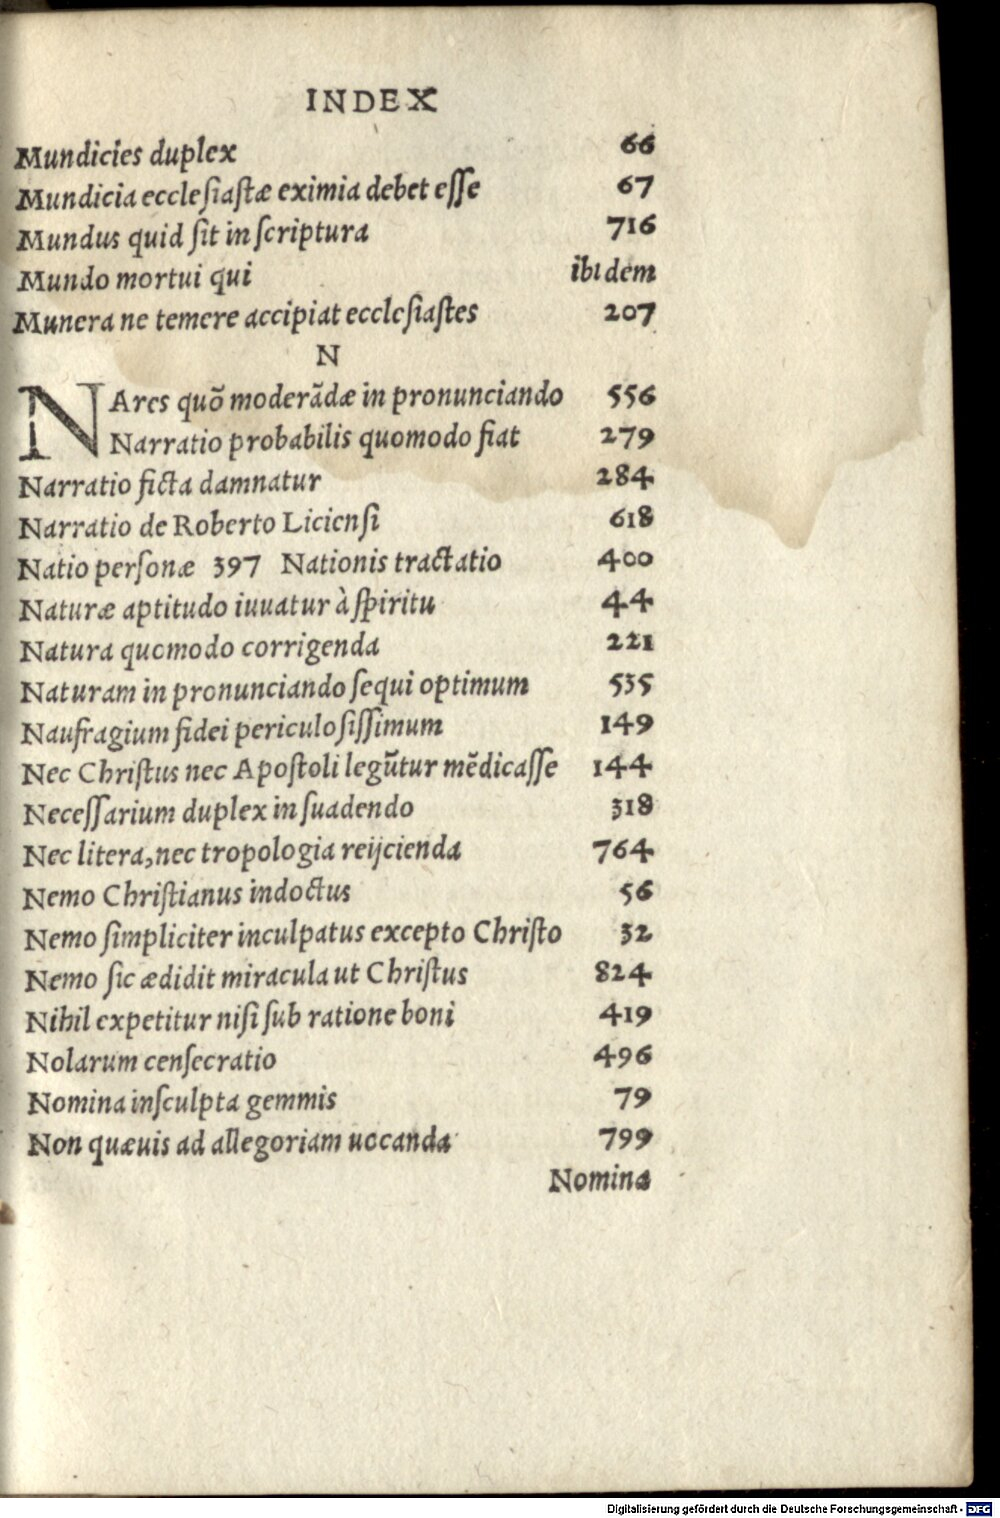 INDEX
Mundicies duplex 66
Mundicia ecclesiastæ eximia debet esse 67
Mundus quid sit in scriptura 716
Mundo mortui qui ibidem
Munera ne temere accipiat ecclesiastes 207
N
NAres quõ moderãdæ in pronunciando 556
Narratio probabilis quomodo fiat 279
Narratio ficta damnatur 284
Narratio de Roberto Liciensi 618
Natio personæ 397 Nationis tractatio 400
Naturæ aptitudo iuuatur à spiritu 44
Natura quomodo corrigenda 221
Naturam in pronunciando sequi optimum 535
Naufragium fidei periculosissimum 149
Nec Christus nec Apostoli legũtur mẽdicasse 144
Necessarium duplex in suadendo 318
Nec litera, nec tropologia reijcienda 764
Nemo Christianus indoctus 56
Nemo simpliciter inculpatus excepto Christo 32
Nemo sic ædidit miracula ut Christus 824
Nihil expetitur nisi sub ratione boni 419
Nolarum censecratio 496
Nomina insculpta gemmis 79
Non quæuis ad allegoriam uocanda 799
Nomina
Digitalisierung gefördert durch die Deutsche Forschungsgemeinschaft - DFG